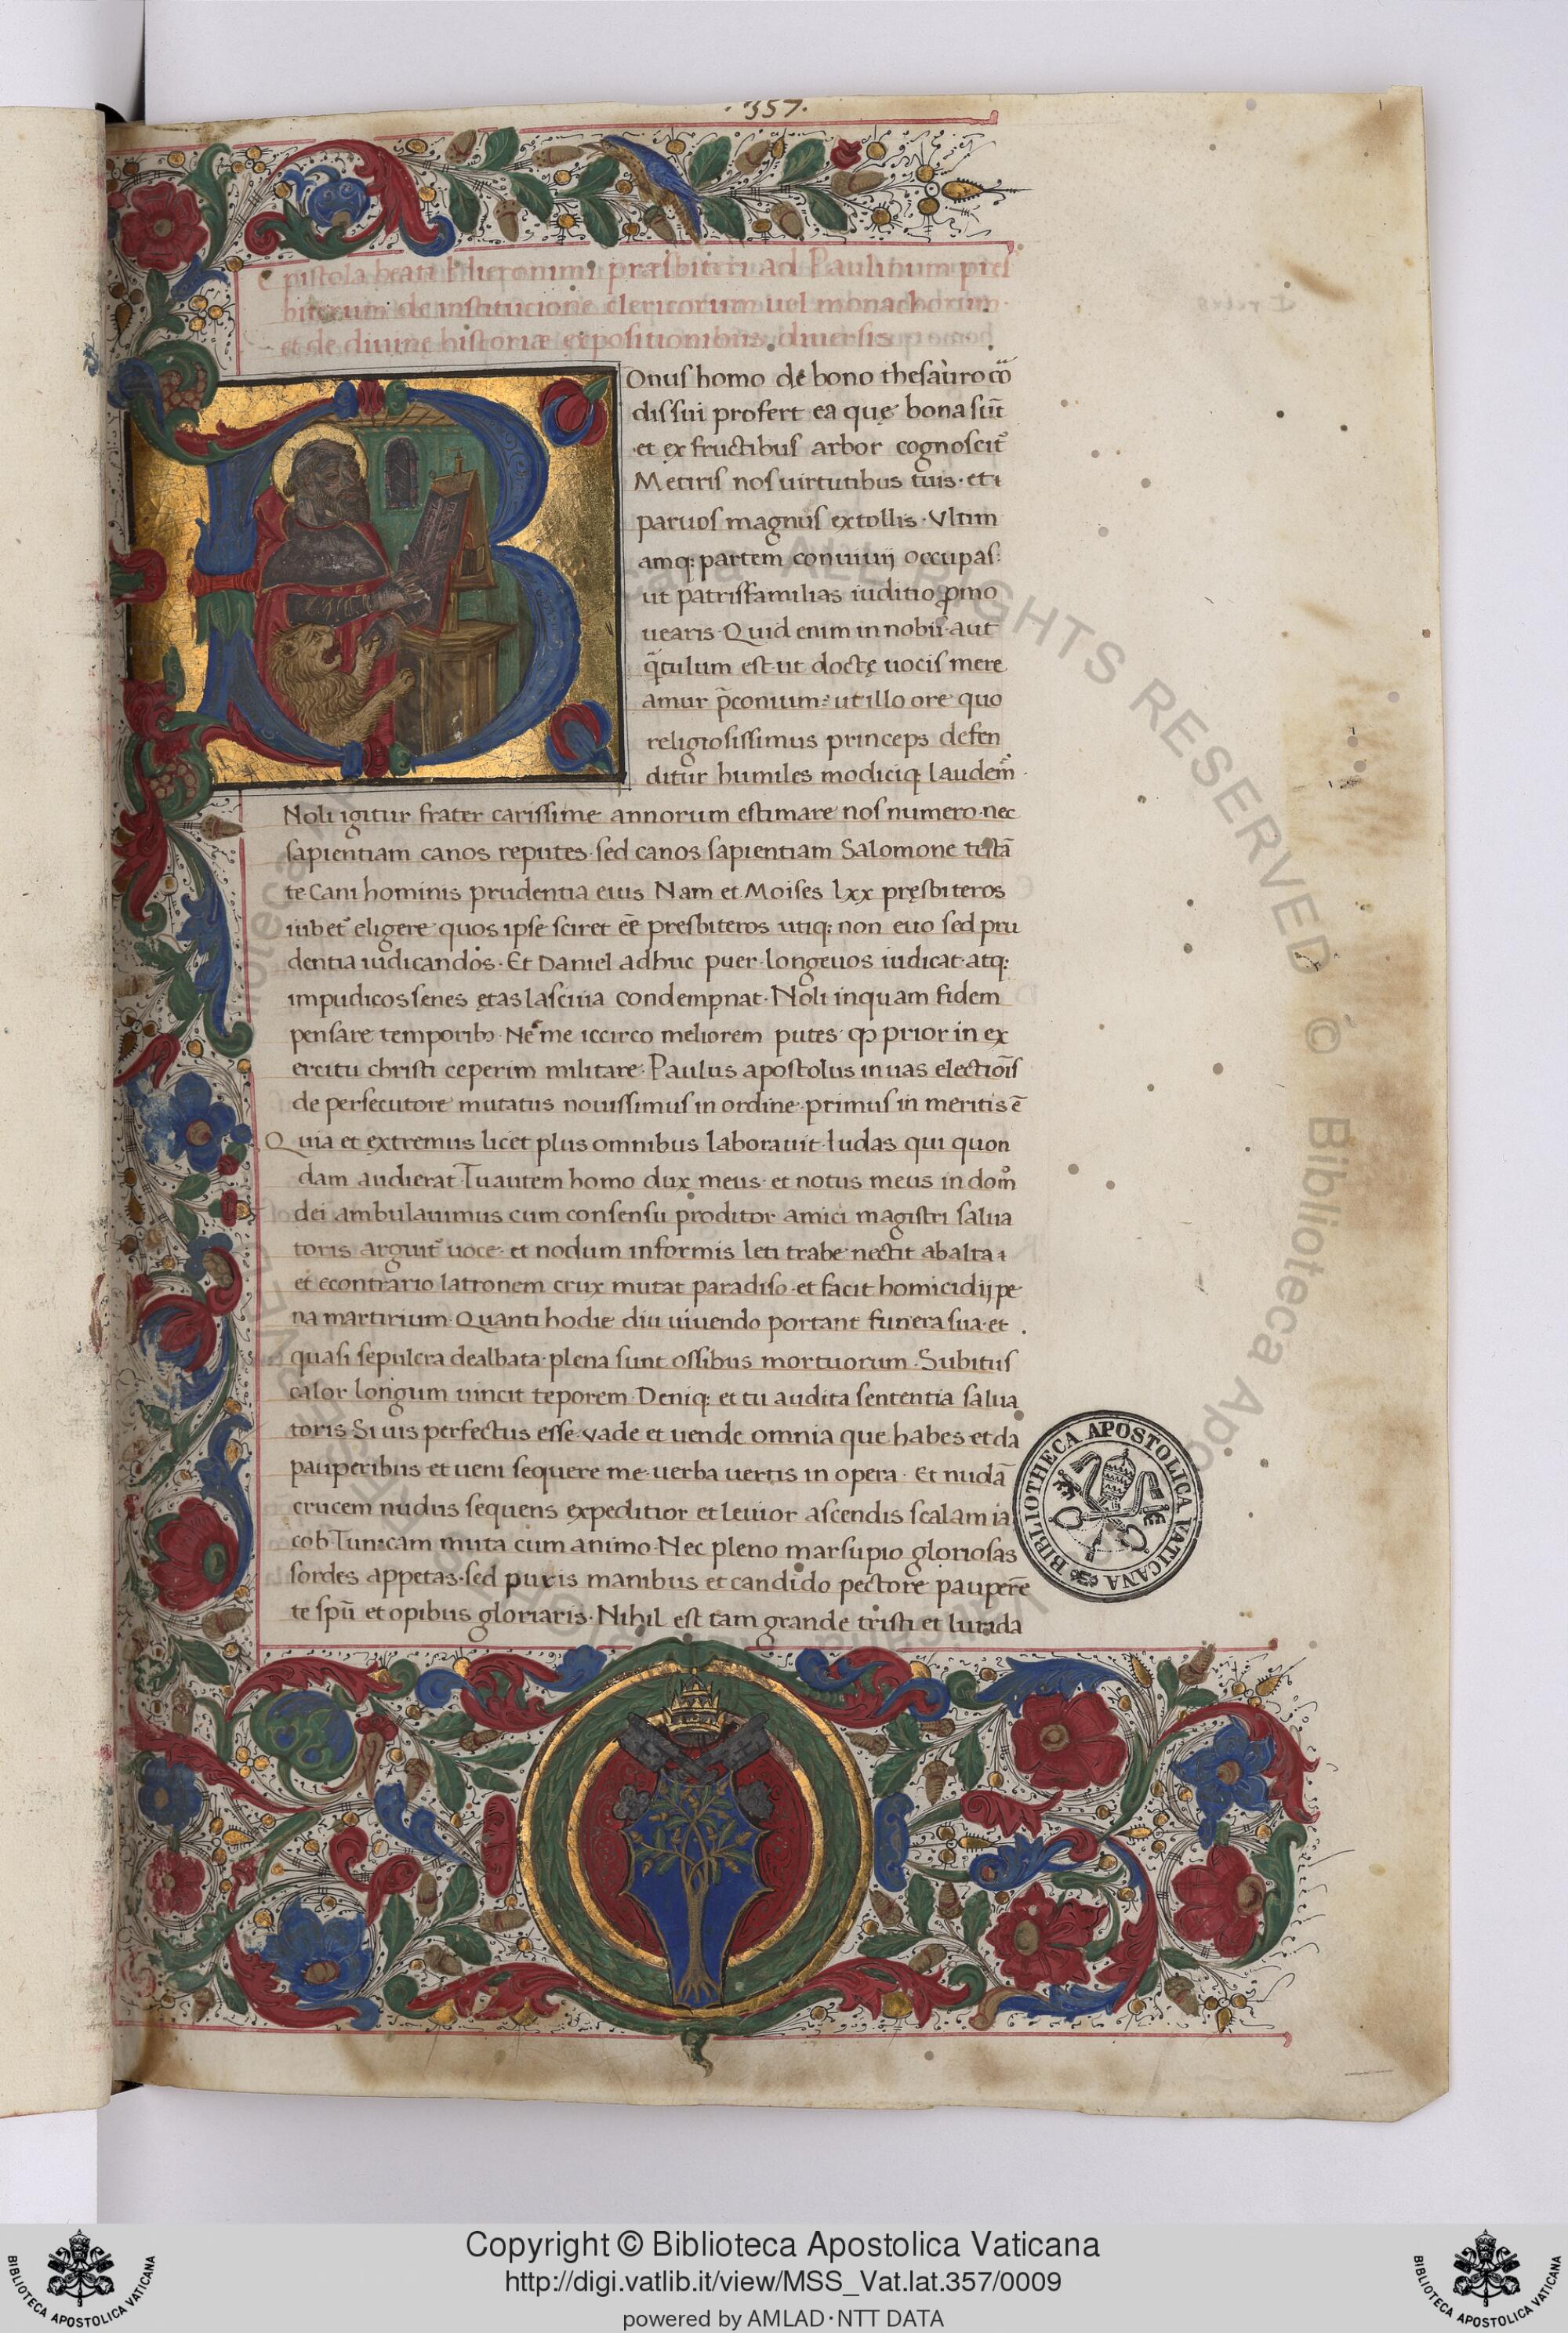 ·357·
Epistola beati Hieronimi præsbiteri ad Paulinum pres
biterum de institucione clericorum uel monachorum·
et de diuine historiæ expositionibus diuersis
Onus homo de bono thesauro cō
dis sui profert ea quę bona sūt
et ex fructibus arbor cognoscit᷑
Metiris nos uirtutibus tuis· et
paruos magnus extollis· Vltim
amq; partem conuiuij occupas:
ut patrisfamilias iuditio ꝓmo
uearis· Quid enim in nobis aut
q̄tulum est ut doctę uocis mere
amur p̄conium: ut illo ore quo
religiosissimus princeps defen
ditur humiles modiciq; laudem᷑·
Noli igitur frater carissime annorum estimare nos numero· nec
sapientiam canos reputes· sed canos sapientiam Salomone testā
te Cani hominis prudentia eius Nam et Moises lxx pręsbiteros
iubet᷑ eligere quos ipse sciret eē presbiteros utiq; non euo sed pru
dentia iudicandos· Et Daniel adhuc puer· longeuos iudicat· atq;
impudicos senes ętas lasciuia condempnat· Noli inquam fidem
pensare temporibꝫ· Ne me iccirco meliorem putes· ꝙ prior in ex
ercitu christi ceperim militare· Paulus apostolus in uas electiōīs
de persecutore mutatus nouissimus in ordine· primus in meritis ē
Quia et extremus licet plus omnibus laborauit· Iudas qui quon
dam audierat· Tu autem homo dux meus· et notus meus in domo
dei ambulauimus cum consensu proditor amici magistri salua
toris arguit᷑ uoce· et nodum informis leti trabe nectit ab alta·
et econtrario latronem crux mutat paradiso· et facit homicidij pe
na martirium· Quanti hodie diu uiuendo portant funera sua· et
quasi sepulcra dealbata· plena sunt ossibus mortuorum· Subitus
calor longum uincit teporem· Deniq; et tu audita sententia salua
toris· Si uis perfectus esse· vade et uende omnia que habes et da
pauperibus et ueni sequere me· uerba uertis in opera· Et nudā
crucem nudus sequens expeditior et leuior ascendis scalam ia
cob· Tunicam muta cum animo· Nec pleno marsupio gloriosas
sordes appetas· sed puris manibus et candido pectore pauperē
te spū et opibus gloriaris· Nihil est tam grande tristi et lurida
BIBLIOTHECA APOSTOLICA VATICANA
ALL RIGHTS RESERVED © Biblioteca Apostolica Vaticana
Copyright © Biblioteca Apostolica Vaticana
http://digi.vatlib.it/view/MSS_Vat.lat.357/0009
powered by AMLAD·NTT DATA
BIBLIOTECA APOSTOLICA VATICANA
BIBLIOTECA APOSTOLICA VATICANA